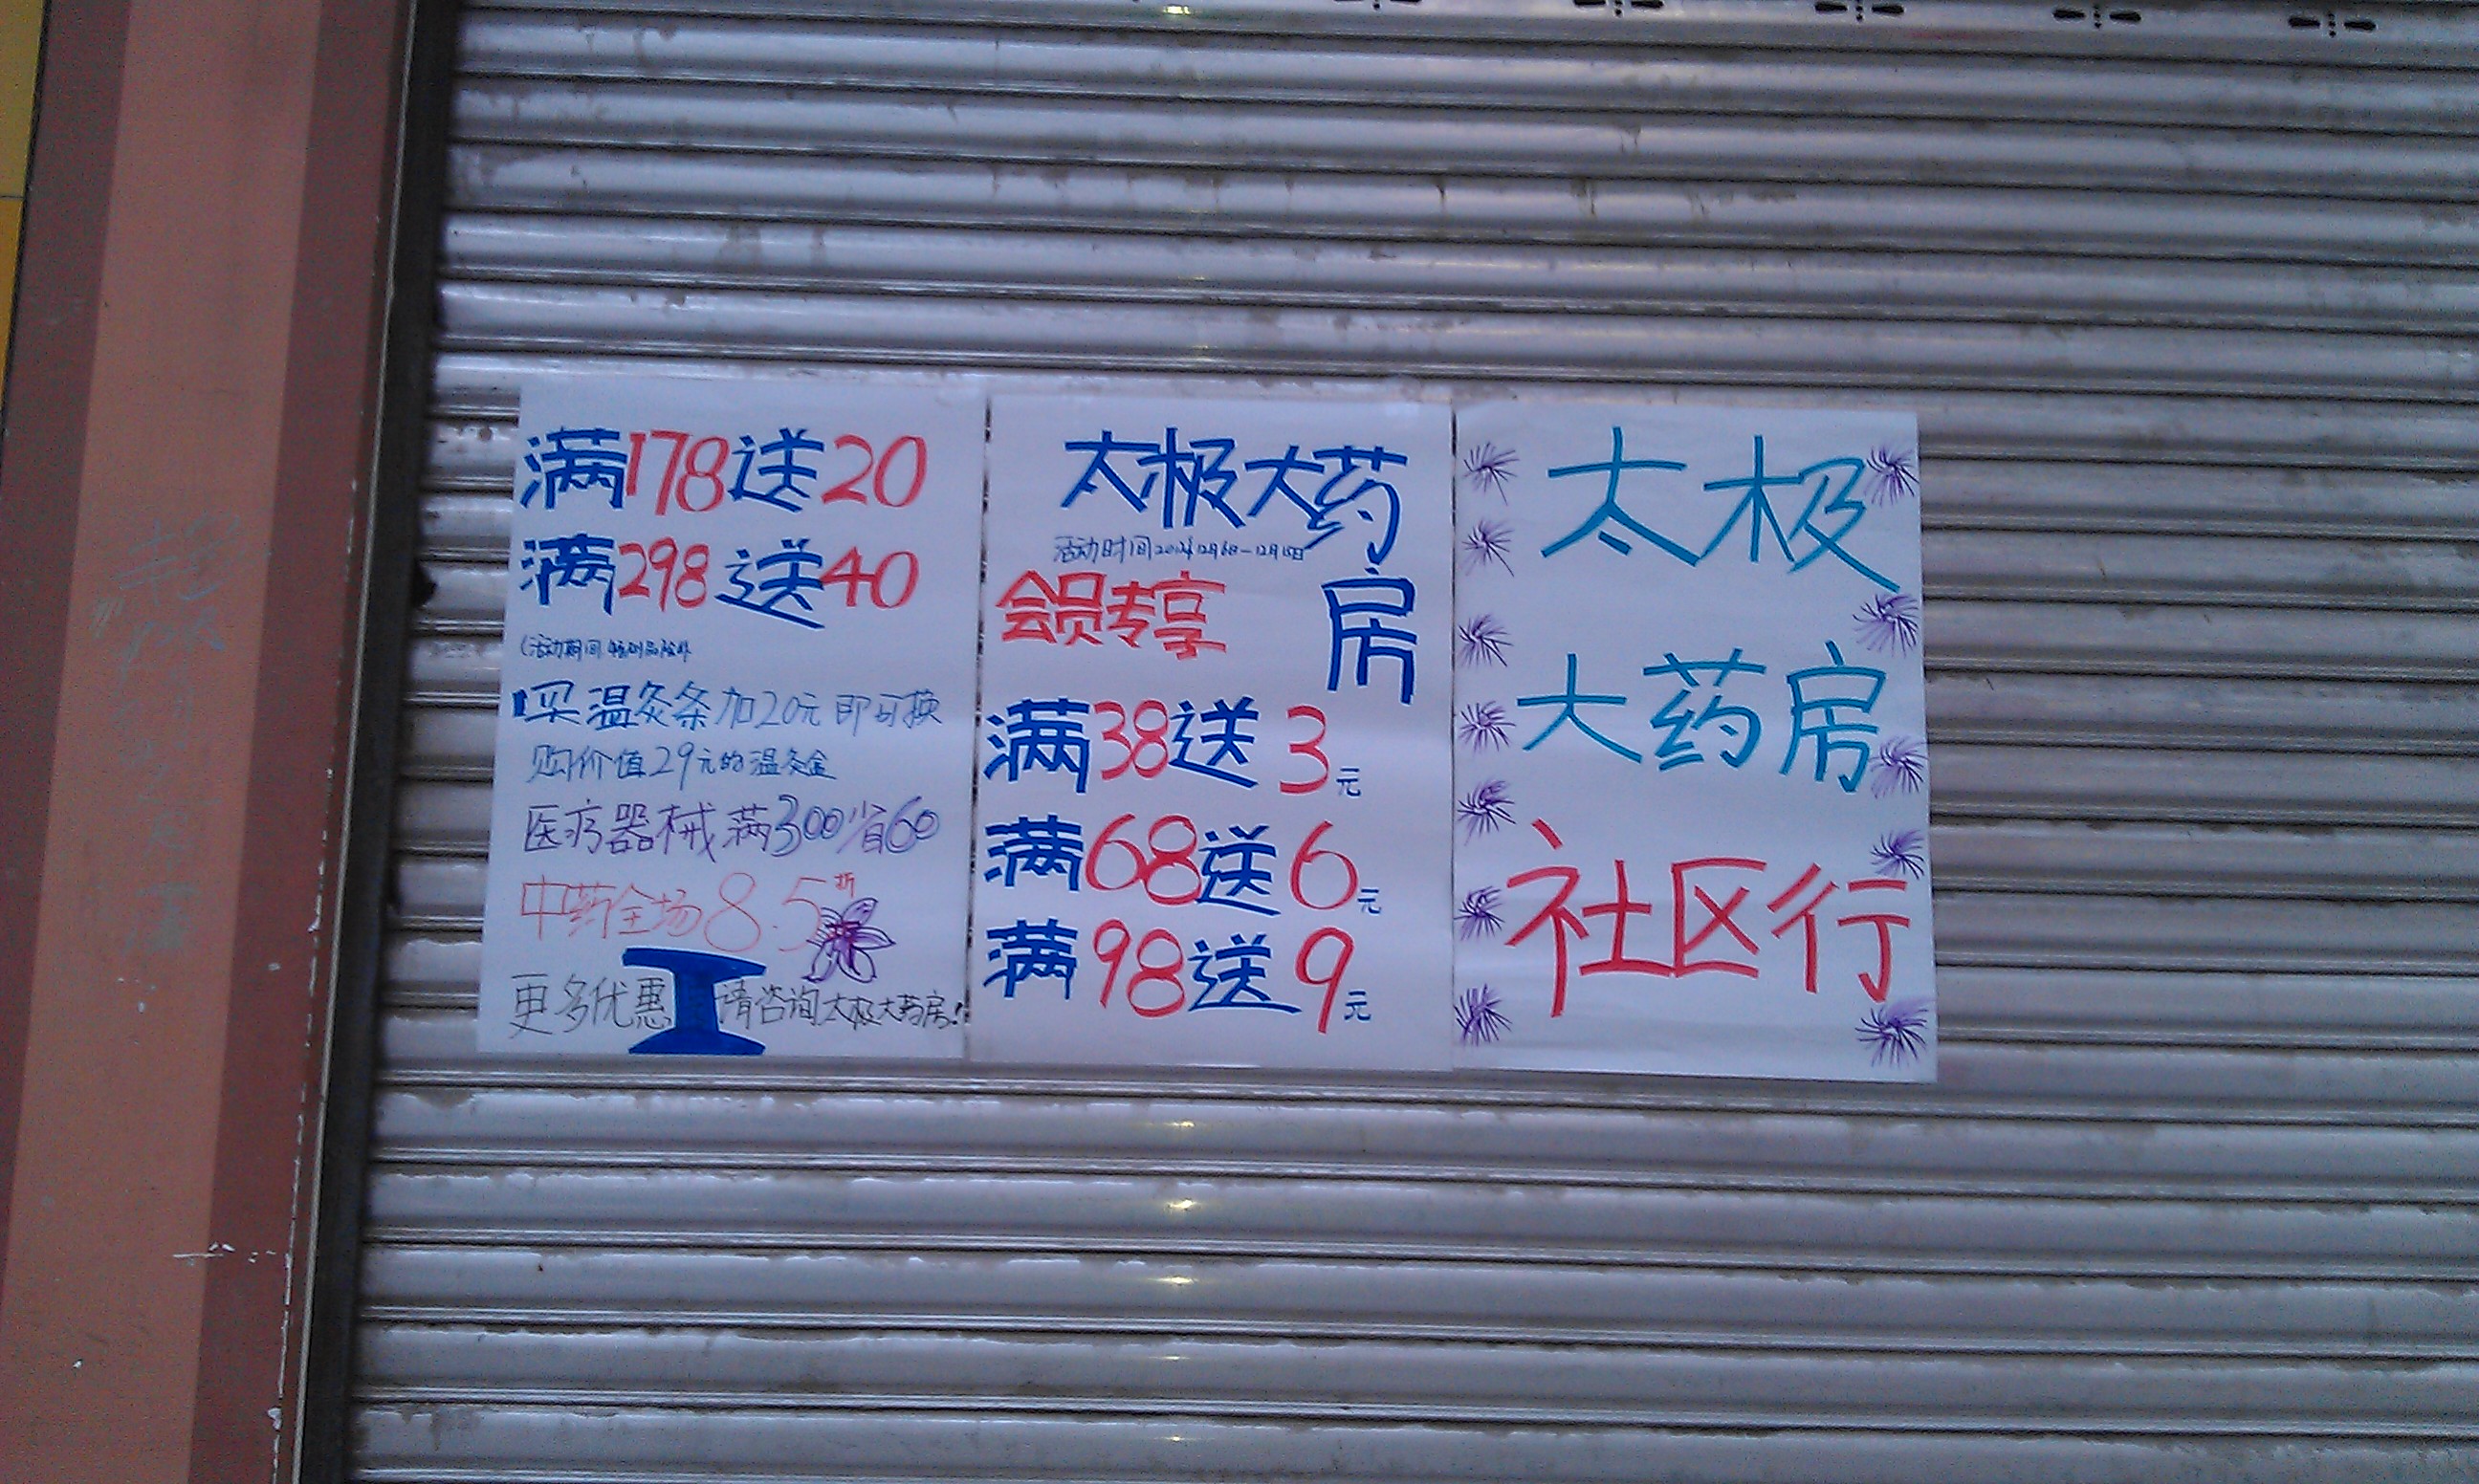 满178送20
满298送40
(活动期间 特例品除外
买温灸条加20元即可换
购价值29元的温灸盒
医疗器械满300省60
中药全场8.5折
更多优惠 请咨询太极大药房!
太极大药房
活动时间2012年12月6日-12月15日
会员专享
满38送3元
满68送6元
满98送9元
太极
大药房
社区行